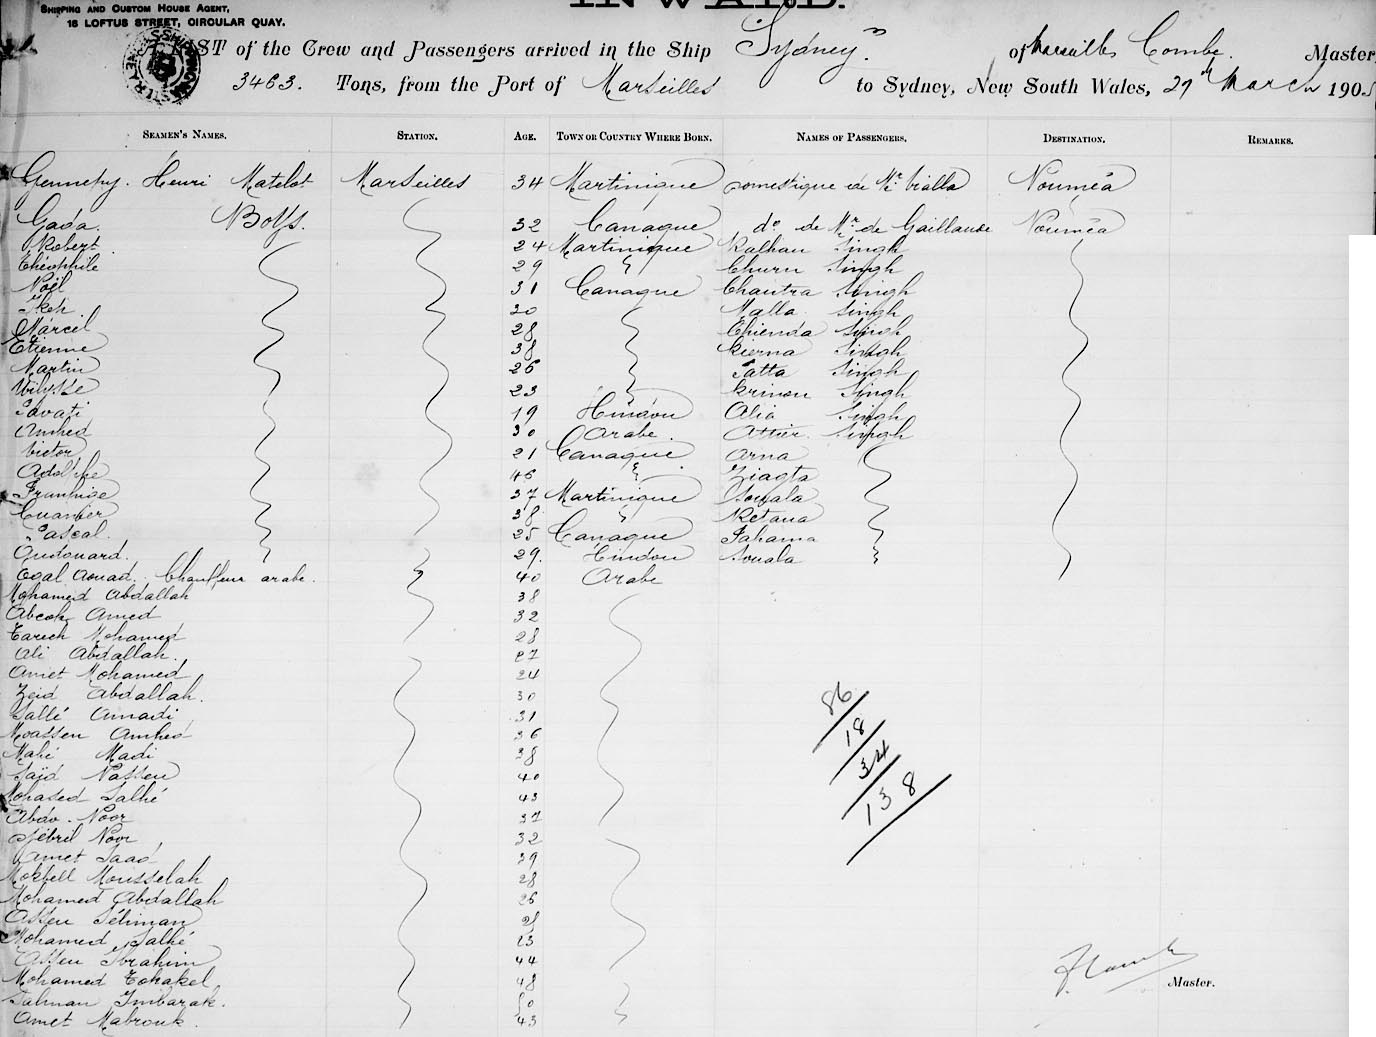 INWARD.
SHIPPING AND CUSTOM HOUSE AGENT,
16 LOFTUS STREET, CIRCULAR QUAY.
A LIST of the Crew and Passengers arrived in the Ship Sydney of Marseilles Combe Master,
3463. Tons, from the Port of Marseilles to Sydney, New South Wales, 27th March 1905
SEAMEN'S NAMES. STATION. AGE. TOWN OR COUNTRY WHERE BORN. NAMES OF PASSENGERS. DESTINATION. REMARKS.
Henri Matelot Marseilles 34 Martinique Domestique de Mr Vialla Nouméa
Gada. Boys. 32 Canaque do de Mr de Gaillande Nouméa
Robert 24 Martinique Kalhan Singh
Théophile 29 Churn Singh
Noël 31 Canaque Chautra Singh
30 Malla Singh
Marcel 28 Chienda Singh
Etienne 38 Kierna Singh
Martin 26 Tatta Singh
23 Singh
Savati 19 Hindou Alia Singh
Amhed 30 Arabe. Attier Singh
Victor 21 Canaque Arna
Adolphe 46 Ziagta
37 Martinique
38 Retana
Pascal. 25 Canaque Pahama
Audouard. 29. Hindou Souala
Egal Aouad. Chauffeur arabe. 40 Arabe
Mohamed Abdallah 38
Amed 32
Tarech Mohamed 28
Ali Abdallah. 27
Amet Mohamed 24
Zeid Abdallah. 30
Sallé Amadi 31
Moassen Amhed 36
Mahé Madi 38
Saïd Nassen 40
Mohased Salhé 43
Abdo. Noor 37
Djébril Noor 32
Amet Saad 39
Mokbell Mousselah 28
Mohamed Abdallah 26
Assen Séliman 28
Mohamed Salhé 23
Assen Ibrahim 44
Mohamed Tokakel 48
Salman Imbarak. 50
Amet Mabrouk. 43
86
18
34
138
F Combe
Master.